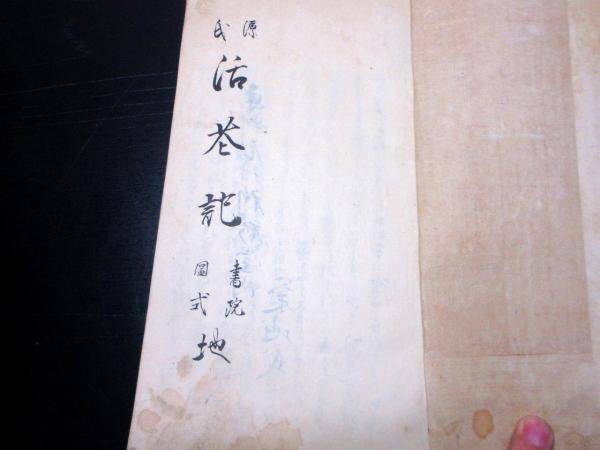 源氏
活花記
書院
圖式
地